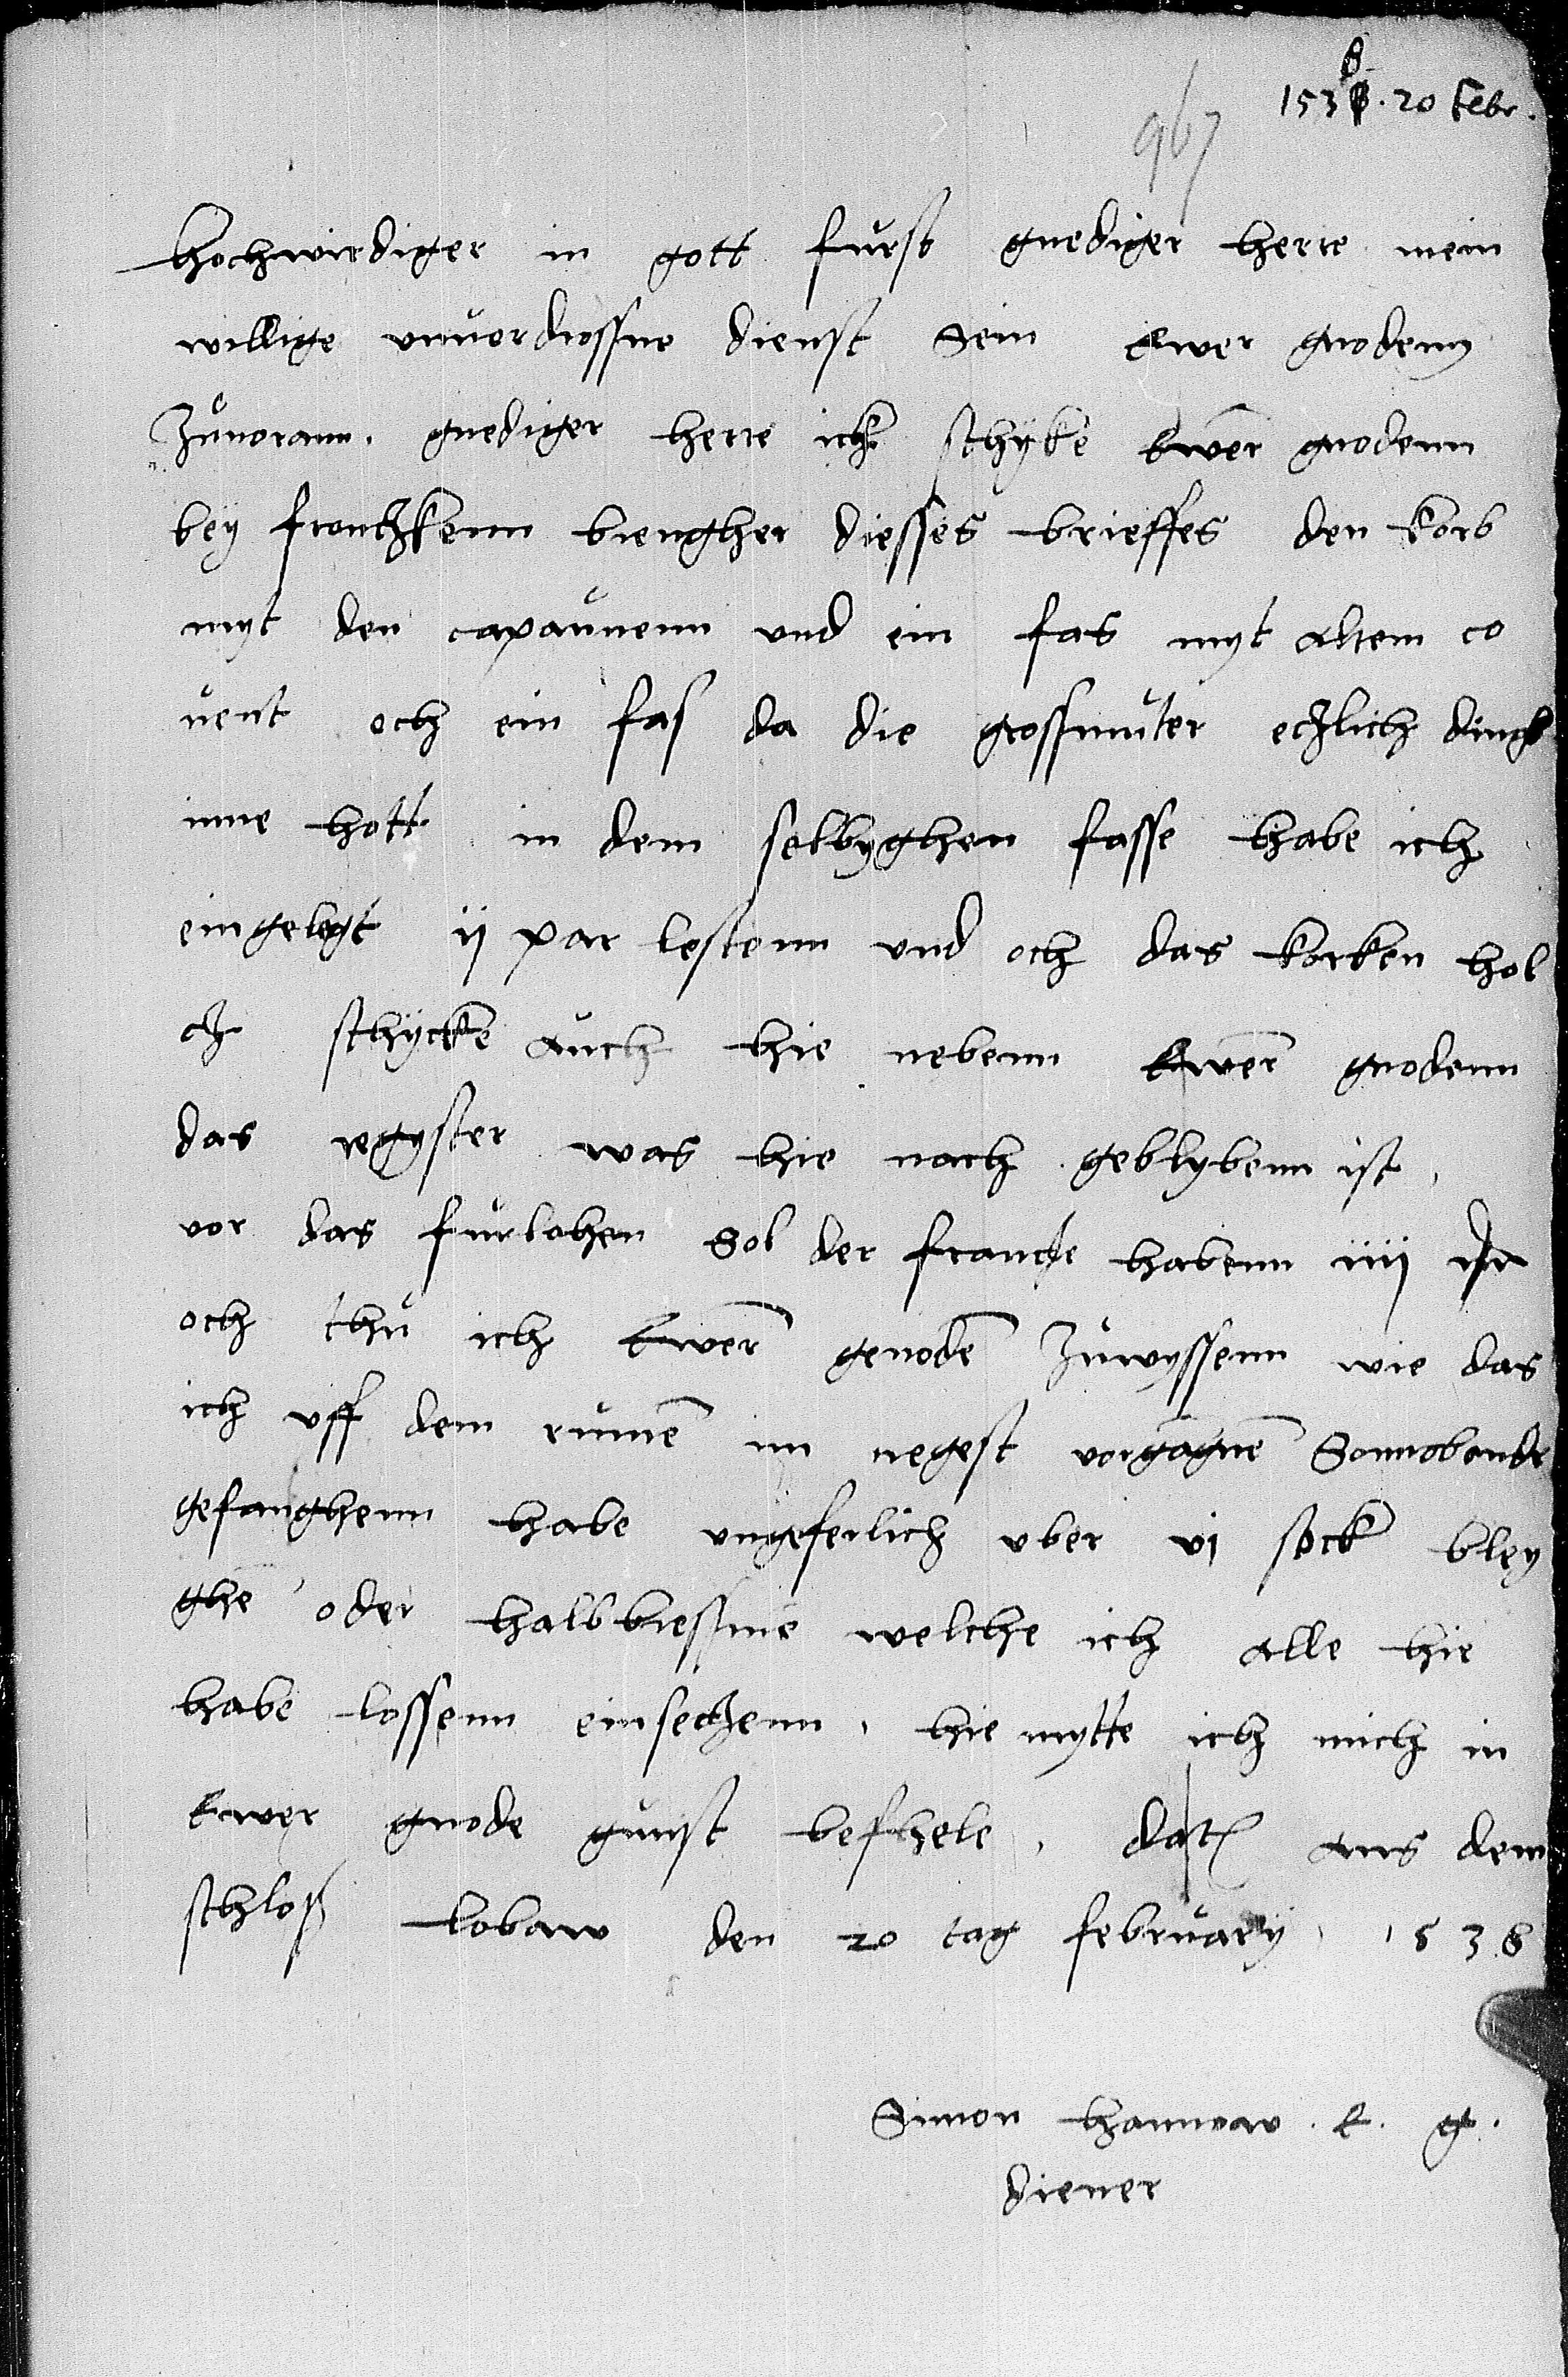 1538. 20 Febr.
967
Hochwirdiger in gott furst gnediger herre mein
willige unuordrossne dienst sein Ewer gnodenn
Zuuorann. gnediger herre ich schyke Ewer gnodenn
bey frontzkenn brengher diesses brieffes den korb
myt den capaunenn und ein fas myt altem co
uent och ein fas da die grossmuter etzlich dingk
inne hott in dem selbyghen fasse habe ich
eingelegt ij par lestenn und och das korken hol
cz schycke auch hie nebenn Ewer gnodenn
das regyster was hie nach geblybenn ist,
vor das furlohen sol der francke habenn iiij
och thu ich Ewer genode zuwyssenn wie das
ich uff dem rume im negest vorgagne Sonnobende
gefanghenn habe ungeferlich uber vj sock bley
ghe oder halbbressme welche ich alle hie
habe lossenn einsetzenn, hie mytte ich mich in
Ewer gnode gunst befhele, dat aus dem
schloß lobaw den 20 tag february 1538
Simon hannow. E. g.
diener